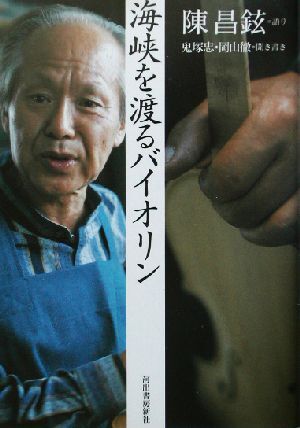 陳昌鉉=語り
鬼塚忠・岡山徹=聞き書き
海峡を渡るバイオリン
河出書房新社